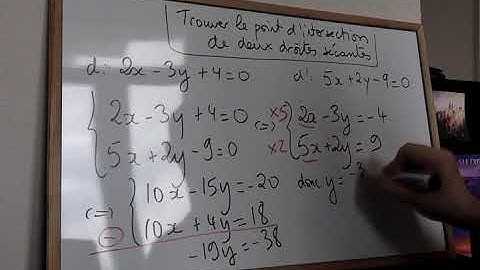 Trouver le point d'itersection
de deux droites sécantes
d: 2x-3y+4=0
d': 5x+2y-9=0
2x-3y+4=0
5x+2y-9=0
(=)
x5 2x-3y=-4
x2 5x+2y=9
(=)
10x-15y=-20
- 10x+4y=18
-19y=-38
donc y=-3